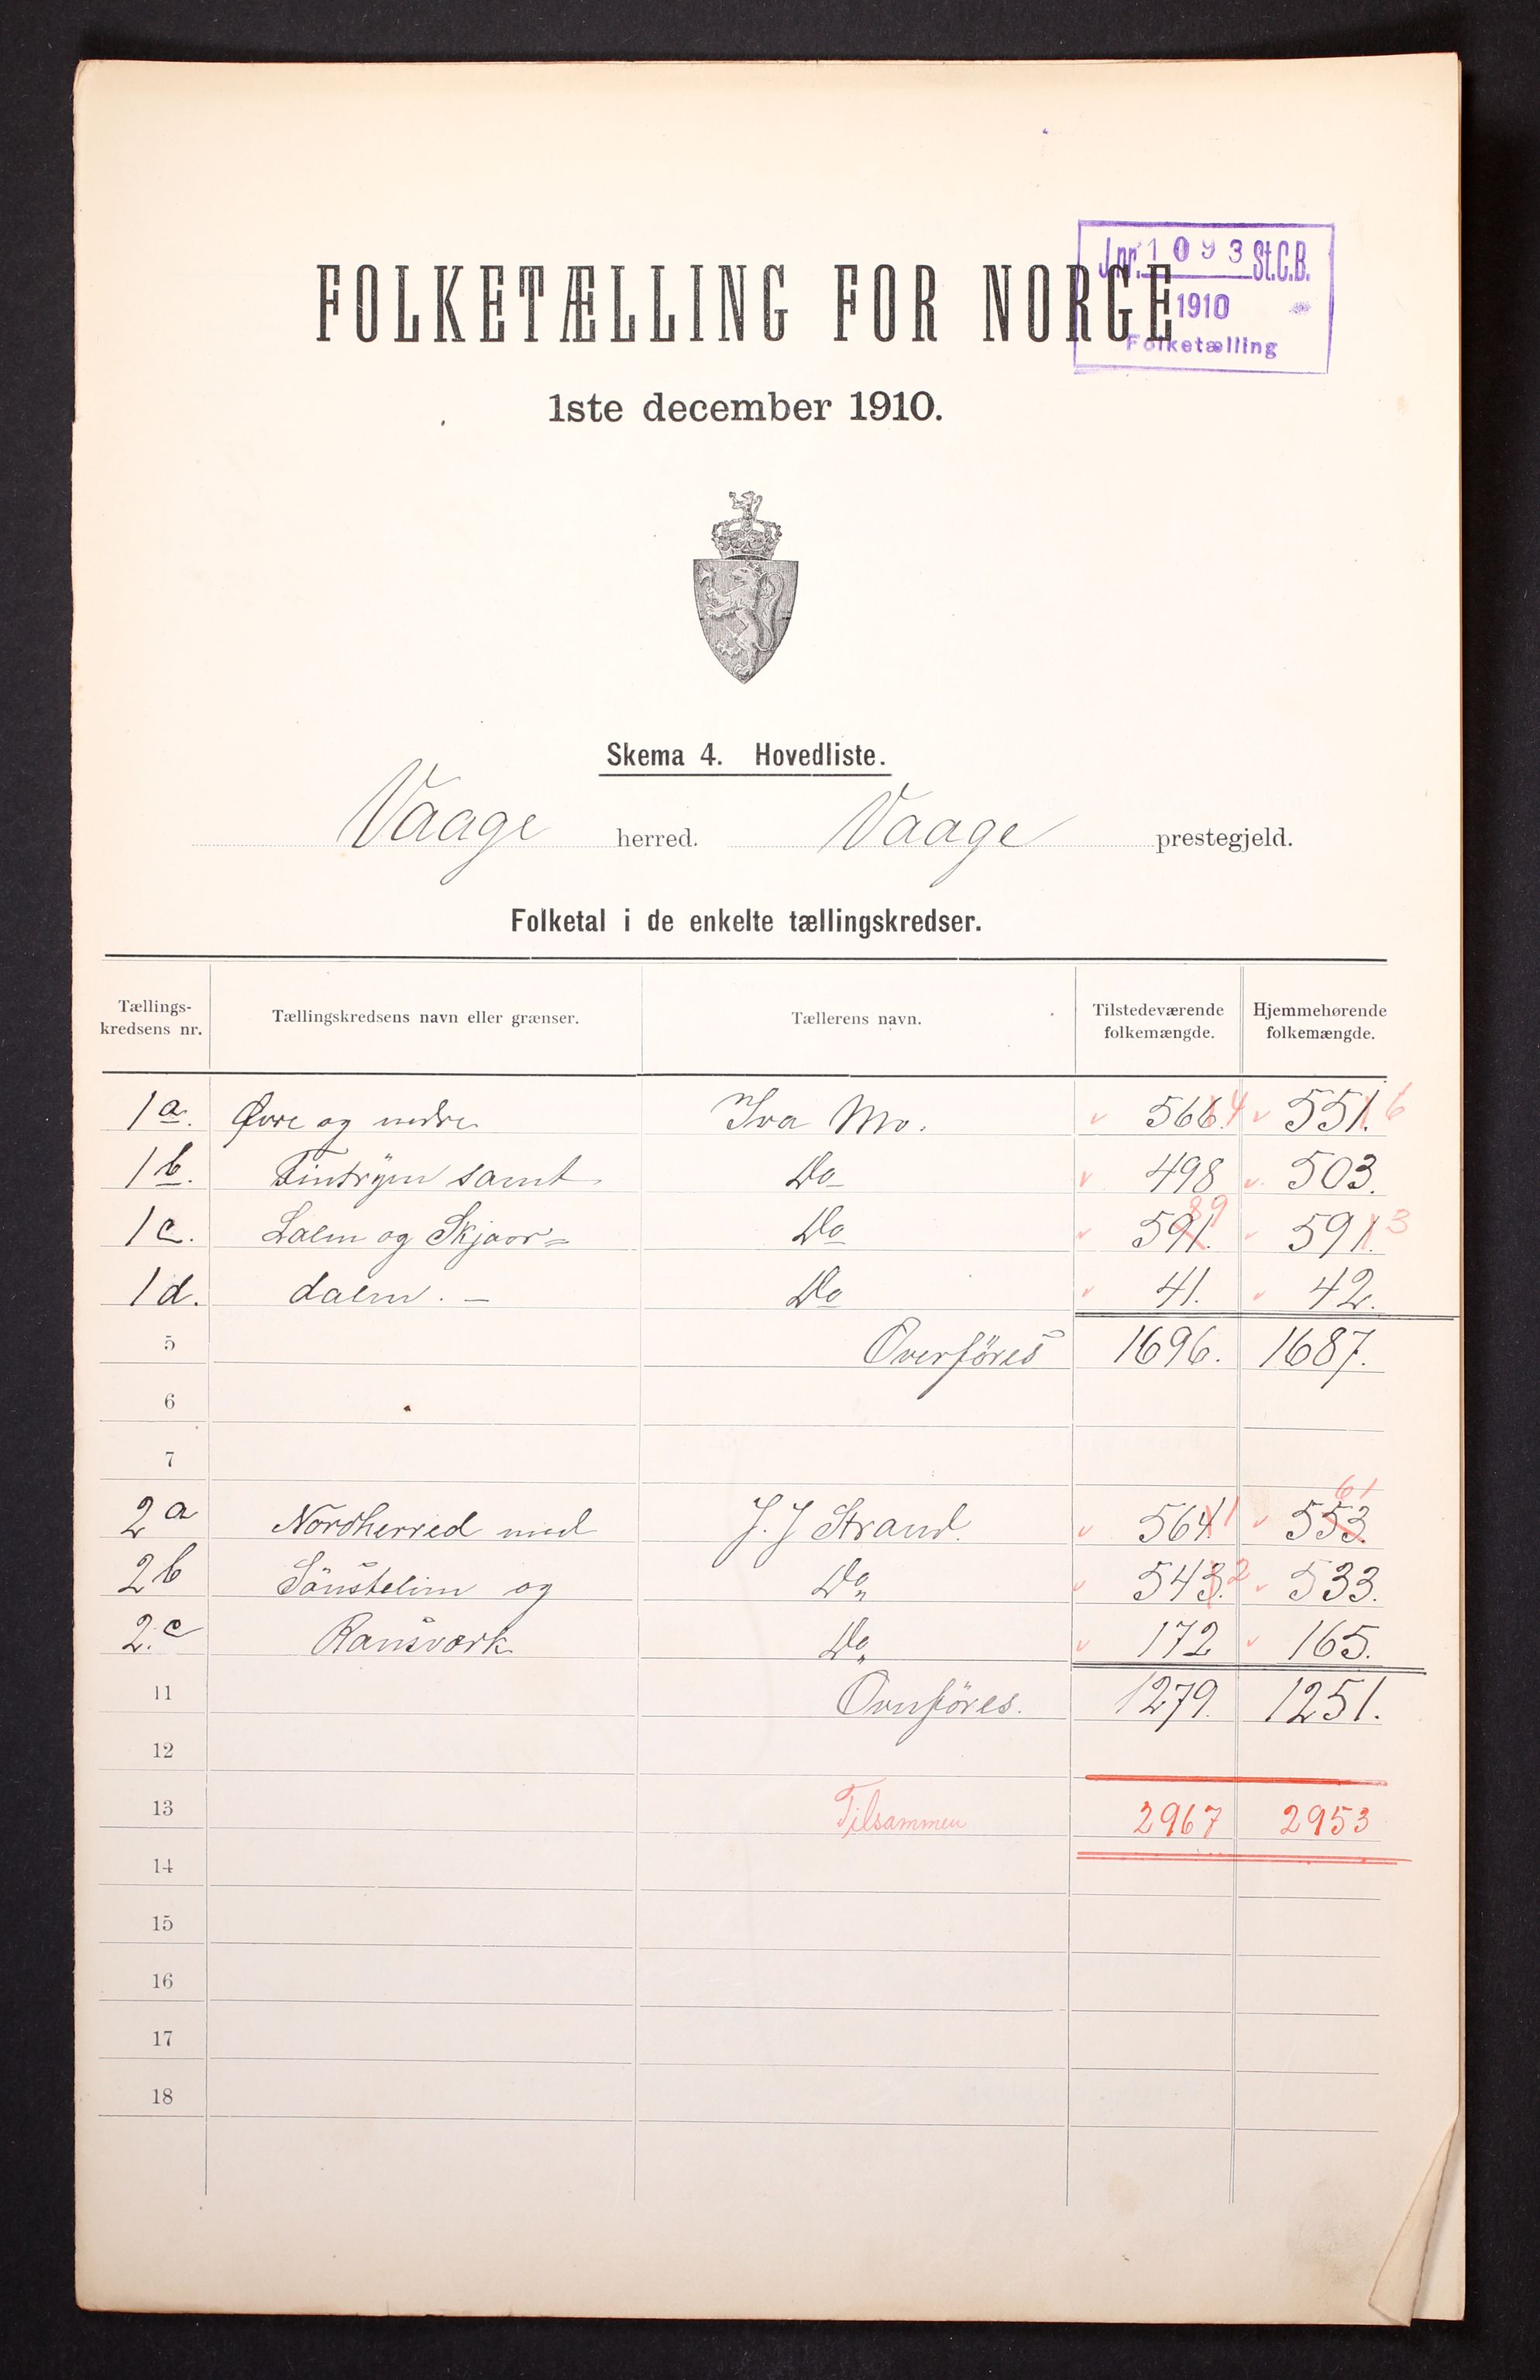 J.nr. 1093 St.C.B.
1910
Folketælling
FOLKETÆLLING FOR NORGE
1ste december 1910.
Skema 4. Hovedliste.
Vaage herred. Vaage prestegjeld.
Folketal i de enkelte tællingskredser.
Tællings-kredsens nr. Tællingskredsens navn eller grænser. Tællerens navn. Tilstedeværende folkemængde. Hjemmehørende folkemængde.
1a. Øvre og nedre Iva Mo. v 566. 4 v 551. 6
1b. samt Do v 498 v 503.
89
1c. Lalm og Skjaar= Do v 591. v 591. 3
1d. dalen. — Do v 41. v 42.
5 Overföres 1696. 1687.
6
7
61
2a Nordherred med J. J Strand. v 564. 1 v 553
2b og Do v 543. 2 v 533.
2.c Ransværk Do v 172 v 165.
11 Overföres. 1279. 1251.
12
13 Tilsammen 2967 2953
14
15
16
17
18